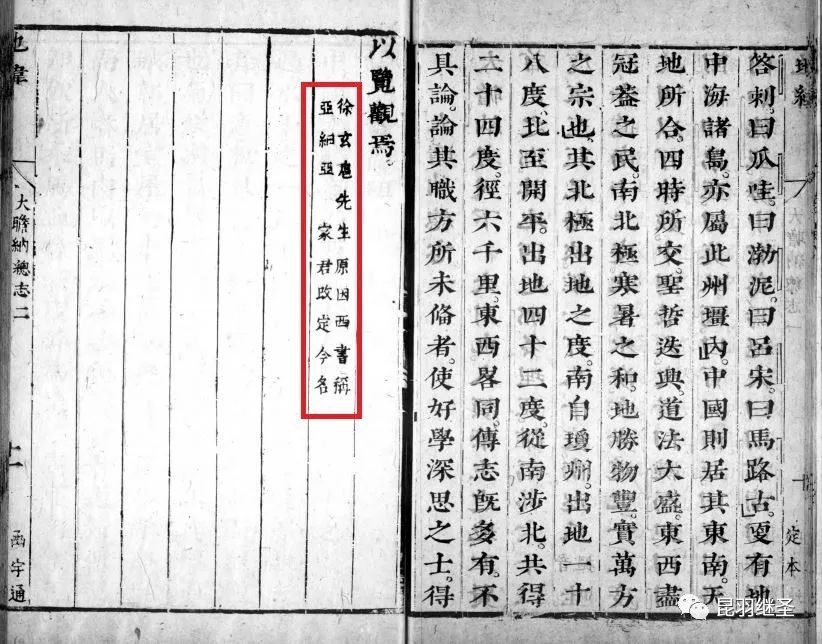 答刺曰瓜哇。曰渤泥。曰呂宋。曰馬路古。更有地
中海諸島。亦屬此州壃內。中國則居其東南。天
地所合。四時所交。聖哲迭興。道法大盛。東西盡
冠葢之民。南北極寒暑之和。地勝物豐。實萬方
之宗也。其北極出地之度。南自瓊州。出地一十
八度。北至開平。出地四十二度。從南涉北。共得
二十四度。徑六千里。東西畧同。傳志既多有。不
具論。論其職方所未偹者。使好學深思之士。得
定本
以覽觀焉。
徐玄扈先生原因西書稱
亞細亞 家君改定今名
大瞻納總志二
函宇通
昆羽继圣